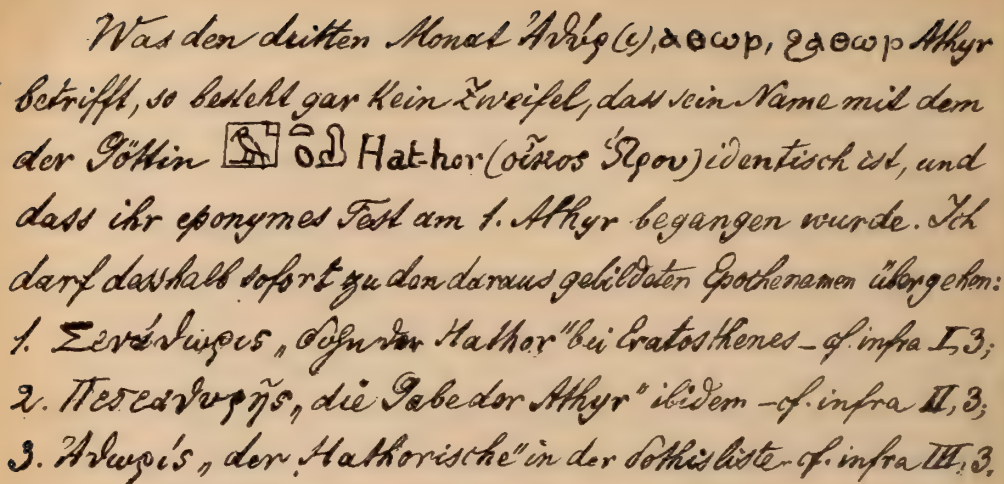 Was den dritten Monat Ἀθύρ(ι), ⲁⲑⲱⲣ, ϩⲁⲑⲱⲣ Athyr
betrifft, so besteht gar kein Zweifel, dass sein Name mit dem
der Göttin Hat-hor (οἶκος Ὥρου) identisch ist, und
dass ihr eponymes Fest am 1. Athyr begangen wurde. Ich
darf desshalb sofort zu den daraus gebildeten Epochenamen übergehen:
1. Σενάθωρις „Sohn der Hathor" bei Eratosthenes – cf. infra I, 3;
2. Πετεαθυρῆς „die Gabe der Athyr" ibidem – cf. infra II, 3;
3. Ἀθωρίς „der Hathorische" in der Sothisliste – cf. infra III, 3.